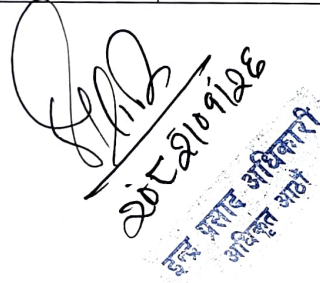 २०८२/०१/२६
इन्द्र प्रसाद अधिकारी
अधिकृत आठौं